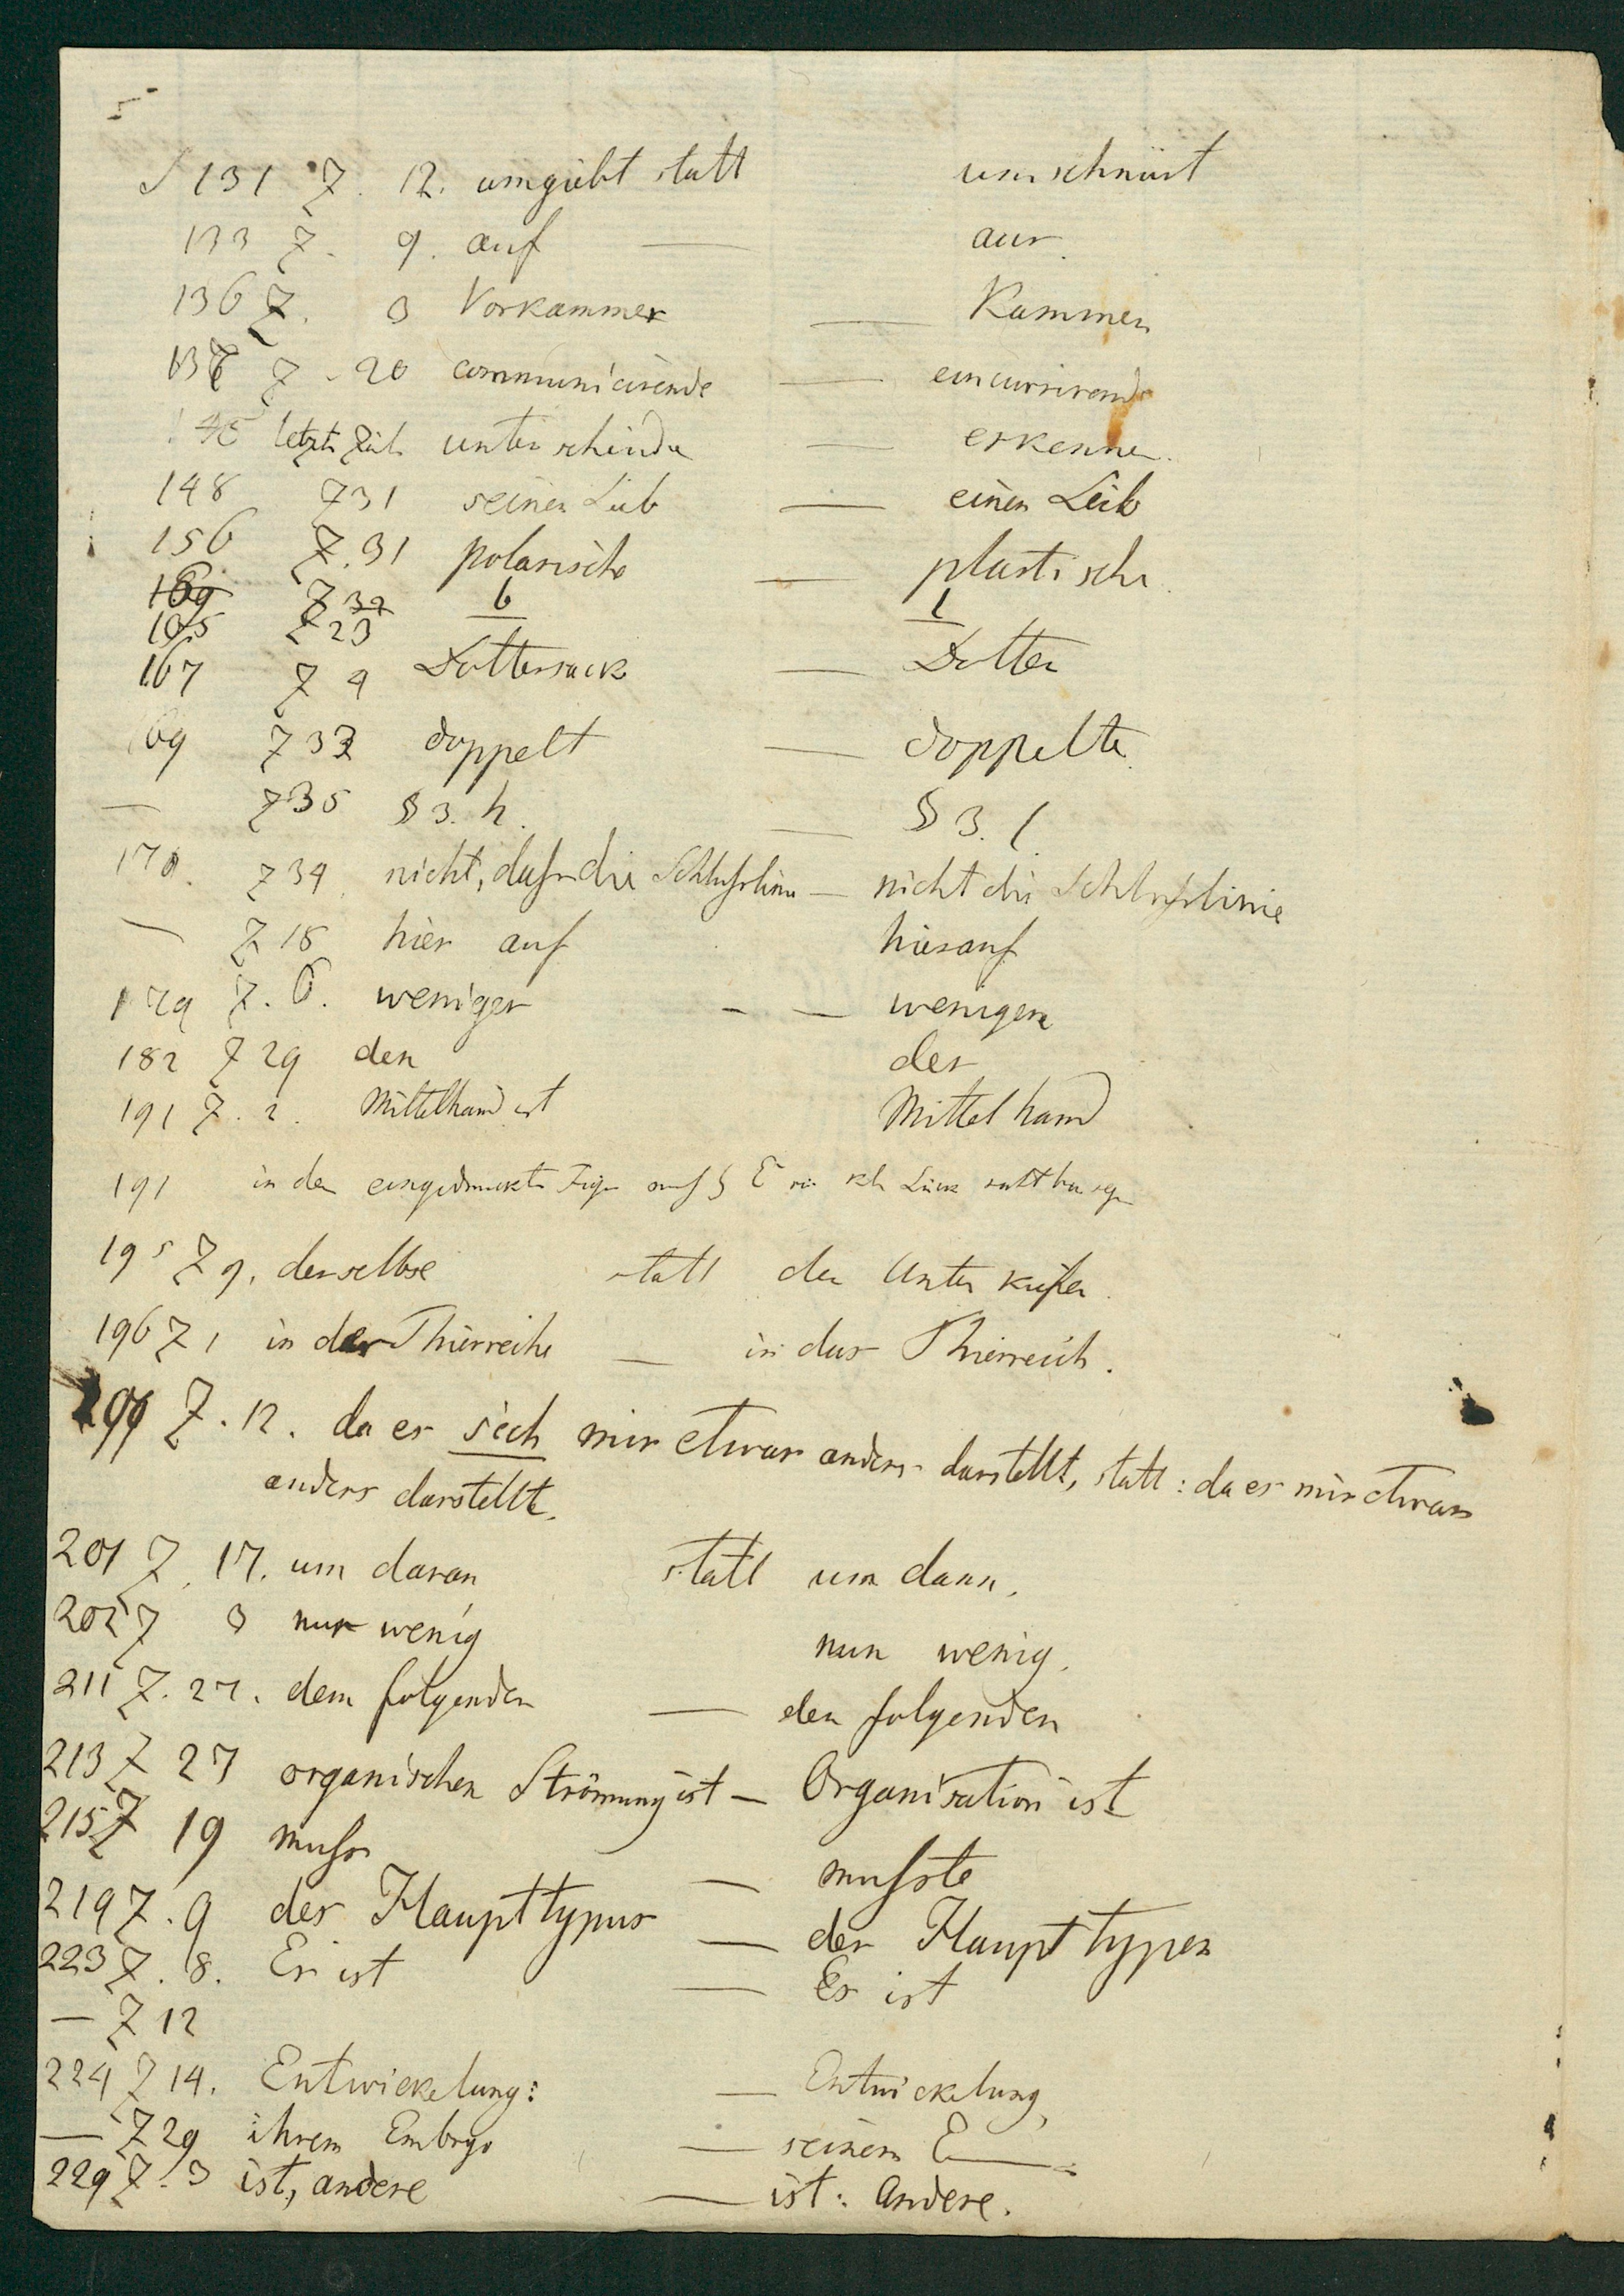 5
S 131 Z. 12. umgiebt statt umschnürt
133 Z. 9. auf — aus.
136 Z. 3 Vorkammer — Kammer
137 Z. 20 communicirende —
letzte Zeile unterscheiden — erkennen.
148 Z 31 seinen Leib — einen Leib
156 Z. 31 polarische — plastische
169 Z 32 b l
165 Z 23
167 Z 4 Dottersack — Dotter
169 Z 32 doppelt — doppelte.
— Z 35 § 3. h. — § 3. l.
170. Z 34 nicht, dass die Schlusslinie — nicht die Schlusslinie
— Z 18 hier auf hierauf
179 Z. 6. weniger — — wenigere
182 Z 29 den der
191 Z. 2. Mittelhand ist Mittelhand
191 in der eingedruckten Figur muss
195 Z 9, derselbe statt der Unterkiefer.
196 Z 1 in der Thierreihe — in das Thierreich.
Z. 12. da es sich mir etwas anders darstellt, statt: da es mir etwas
anders darstellte.
201 Z. 17. um daran statt um dann.
202 Z 3 nur wenig nun wenig.
211 Z. 27. dem folgenden — den folgenden
213 Z 27 organischen Strömung ist — Organisation ist
215 Z 19 muss — musste
219 Z. 9 des Haupttypus — der Haupttypen
223 Z. 8. Er ist — Es ist
— Z 12
224 Z 14. Entwickelung: — Entwickelung,
— Z 29 ihrem Embryo — seinem E—
229 Z. 3 ist, andere — ist: Andere.